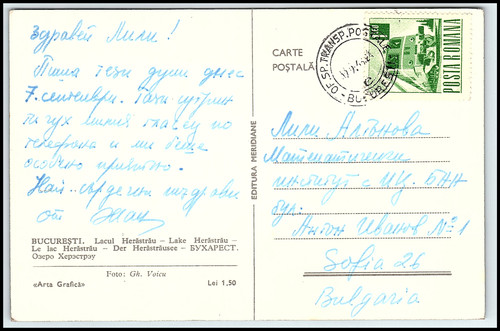 Здравей Лили!
Пиша тези думи днес
7. септември. Тази сутрин
чух милия гласец по
телефона и ми беше
особено приятно.
Най-сърдечни поздрави
от
BUCUREȘTI. Lacul Herăstrău – Lake Herăstrău –
Le lac Herăstrău – Der Herăstrăusee – БУХАРЕСТ.
Озеро Херэстрэу
Foto: Gh. Voicu
«Arta Grafică» Lei 1,50
EDITURA MERIDIANE
CARTE
POȘTALĂ
OF. SP. TRANSP. POȘTALE
BUCUREȘTI
POSTA ROMANA
Лили Антонова
Математически
институт с ИЦ. БАН
бул.
Антон Иванов №1
Sofia 26
Bulgaria